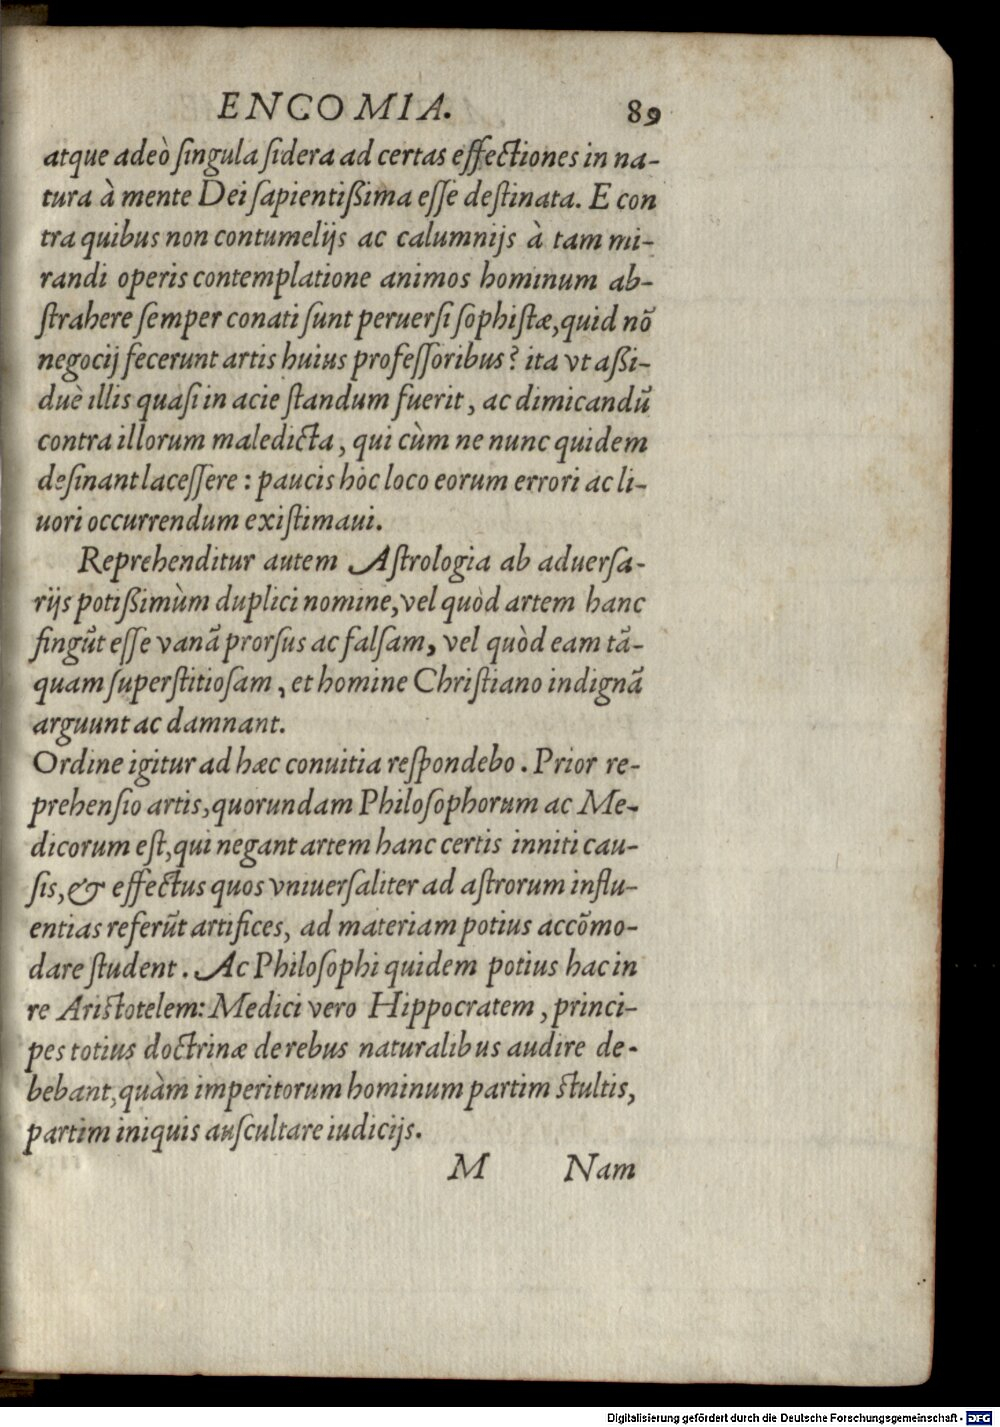 ENCOMIA. 89
atque adeò ſingula ſidera ad certas effectiones in na-
tura à mente Dei ſapientißima eſſe deſtinata. E con
tra quibus non contumelijs ac calumnijs à tam mi-
randi operis contemplatione animos hominum ab-
ſtrahere ſemper conati ſunt peruerſi ſophiſtæ, quid nõ
negocij fecerunt artis huius profeſſoribus? ita vt aßi-
duè illis quaſi in acie ſtandum fuerit, ac dimicandũ
contra illorum maledicta, qui cùm ne nunc quidem
deſinant laceſſere: paucis hoc loco eorum errori ac li-
uori occurrendum exiſtimaui.
Reprehenditur autem Aſtrologia ab aduerſa-
rijs potißimùm duplici nomine, vel quòd artem hanc
fingũt eſſe vanã prorſus ac falſam, vel quòd eam tã-
quam ſuperſtitioſam, et homine Chriſtiano indignã
arguunt ac damnant.
Ordine igitur ad hæc conuitia reſpondebo. Prior re-
prehenſio artis, quorundam Philoſophorum ac Me-
dicorum eſt, qui negant artem hanc certis inniti cau-
ſis, & effectus quos vniuerſaliter ad aſtrorum influ-
entias referũt artifices, ad materiam potius accõmo-
dare ſtudent. Ac Philoſophi quidem potius hac in
re Ariſtotelem: Medici vero Hippocratem, princi-
pes totius doctrinæ de rebus naturalibus audire de-
bebant, quàm imperitorum hominum partim ſtultis,
partim iniquis auſcultare iudicijs.
M Nam
Digitalisierung gefördert durch die Deutsche Forschungsgemeinschaft - DFG